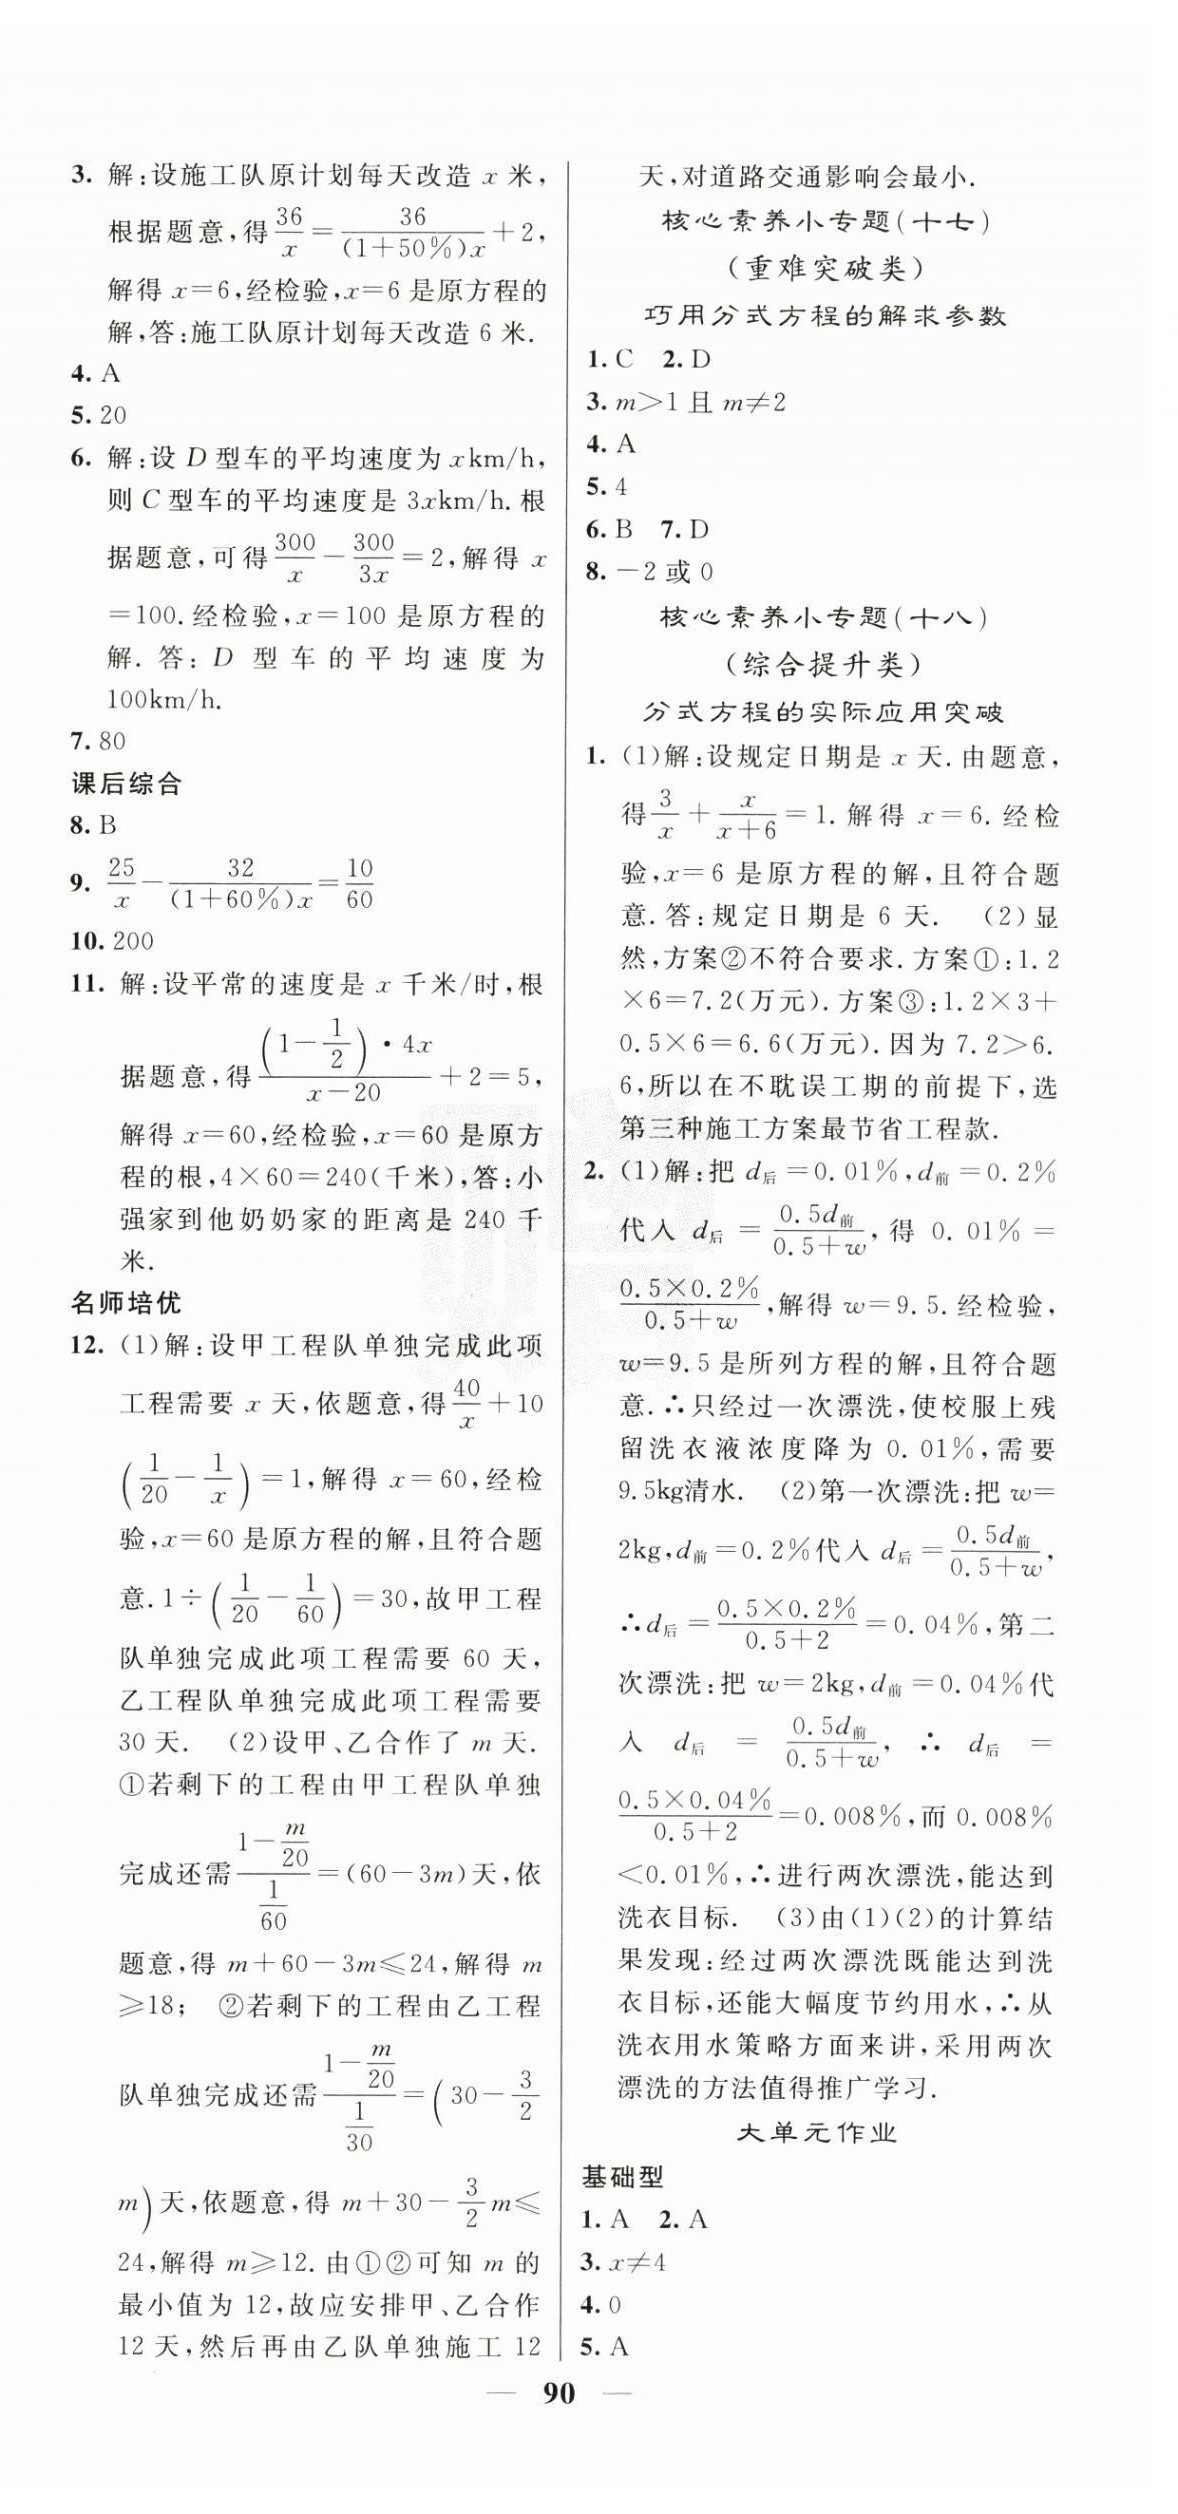 3. 解:设施工队原计划每天改造 x 米,
根据题意,得 36/x = 36/((1+50%)x) +2,
解得 x=6,经检验,x=6 是原方程的
解,答:施工队原计划每天改造 6 米.
4. A
5. 20
6. 解:设 D 型车的平均速度为 x km/h,
则 C 型车的平均速度是 3xkm/h. 根
据题意,可得 300/x − 300/3x =2,解得 x
=100. 经检验,x=100 是原方程的
解. 答: D 型车的平均速度为
100km/h.
7. 80
课后综合
8. B
9. 25/x − 32/((1+60%)x) = 10/60
10. 200
11. 解:设平常的速度是 x 千米/时,根
据题意,得 ((1−1/2)·4x)/(x−20) +2=5,
解得 x=60,经检验,x=60 是原方
程的根,4×60=240(千米),答:小
强家到他奶奶家的距离是 240 千
米.
名师培优
12. (1)解:设甲工程队单独完成此项
工程需要 x 天,依题意,得 40/x +10
(1/20 − 1/x) =1,解得 x=60,经检
验,x=60 是原方程的解,且符合题
意. 1÷(1/20 − 1/60) =30,故甲工程
队单独完成此项工程需要 60 天,
乙工程队单独完成此项工程需要
30 天. (2)设甲、乙合作了 m 天.
①若剩下的工程由甲工程队单独
完成还需 (1−m/20)/(1/60) =(60−3m)天,依
题意,得 m+60−3m≤24,解得 m
≥18; ②若剩下的工程由乙工程
队单独完成还需 (1−m/20)/(1/30) =(30−3/2
m)天,依题意,得 m+30−3/2 m≤
24,解得 m≥12. 由①②可知 m 的
最小值为 12,故应安排甲、乙合作
12 天,然后再由乙队单独施工 12
天,对道路交通影响会最小.
核心素养小专题(十七)
(重难突破类)
巧用分式方程的解求参数
1. C 2. D
3. m>1 且 m≠2
4. A
5. 4
6. B 7. D
8. −2 或 0
核心素养小专题(十八)
(综合提升类)
分式方程的实际应用突破
1. (1)解:设规定日期是 x 天. 由题意,
得 3/x + x/(x+6) =1. 解得 x=6. 经检
验,x=6 是原方程的解,且符合题
意. 答:规定日期是 6 天. (2)显
然,方案②不符合要求. 方案①:1.2
×6=7.2(万元). 方案③:1.2×3+
0.5×6=6.6(万元). 因为 7.2>6.
6,所以在不耽误工期的前提下,选
第三种施工方案最节省工程款.
2. (1)解:把 d后=0.01%,d前=0.2%
代入 d后 = 0.5d前/(0.5+w),得 0.01% =
(0.5×0.2%)/(0.5+w),解得 w=9.5. 经检验,
w=9.5 是所列方程的解,且符合题
意. ∴只经过一次漂洗,使校服上残
留洗衣液浓度降为 0.01%,需要
9.5kg清水. (2)第一次漂洗:把 w=
2kg,d前=0.2%代入 d后= 0.5d前/(0.5+w),
∴d后= (0.5×0.2%)/(0.5+2) =0.04%,第二
次漂洗:把 w=2kg,d前=0.04%代
入 d后 = 0.5d前/(0.5+w), ∴ d后 =
(0.5×0.04%)/(0.5+2) =0.008%,而 0.008%
<0.01%,∴进行两次漂洗,能达到
洗衣目标. (3)由(1)(2)的计算结
果发现:经过两次漂洗既能达到洗
衣目标,还能大幅度节约用水,∴从
洗衣用水策略方面来讲,采用两次
漂洗的方法值得推广学习.
大单元作业
基础型
1. A 2. A
3. x≠4
4. 0
5. A
— 90 —